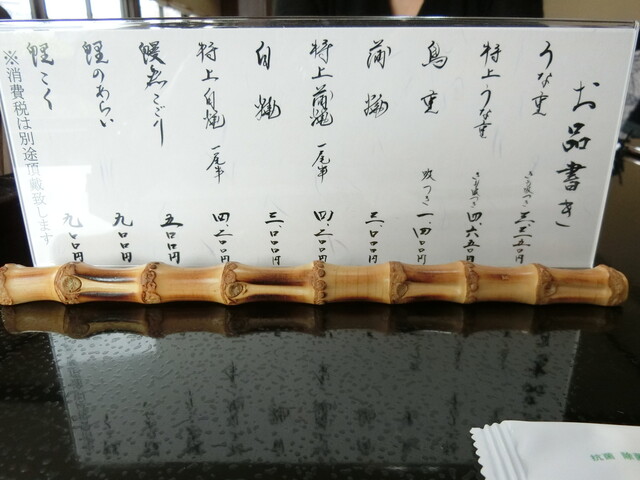 お品書き
うな重 きも吸つき 三、二五〇円
特上うな重 きも吸つき 四、六五〇円
鳥重 吸つき 一、一四〇円
蒲焼 三、〇〇〇円
特上蒲焼 一尾串 四、二〇〇円
白焼 三、〇〇〇円
特上白焼 一尾串 四、二〇〇円
鰻煮こごり 五〇〇円
鯉のあらい 九〇〇円
鯉こく 九〇〇円
※消費税は別途頂戴致します
抗菌 除菌